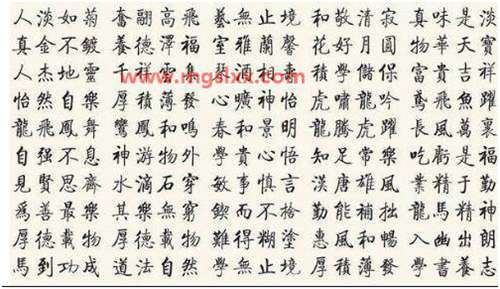 人淡如菊 奮翮高飛 藝無止境 和敬清寂 真味是淡
真金不鍍 養德澤福 室雅蘭馨 花好月圓 物華天寶
人杰地靈 千祥雲集 酒相 積學儲保 富貴吉祥
www.mgslxx.com
怡然自樂 厚積薄發 心曠神怡 虎嘯龍吟 鳶飛魚躍
龍飛鳳舞 鸞鳳和鳴 春和景明 龍騰虎躍 長風萬裏
自强不息 神游物外 學貴心悟 知足常樂 吃虧是福
見賢思齊 水滴石穿 敏事慎言 漢唐雄風 業精于勤
爲善最樂 其樂無窮 鍥而不捨 勤能補拙 龍馬精神
厚德載物 厚德載物 難得糊塗 惠風和暢 入幽出朗
馬到功成 道法自然 學無止境 厚積薄發 學書養志